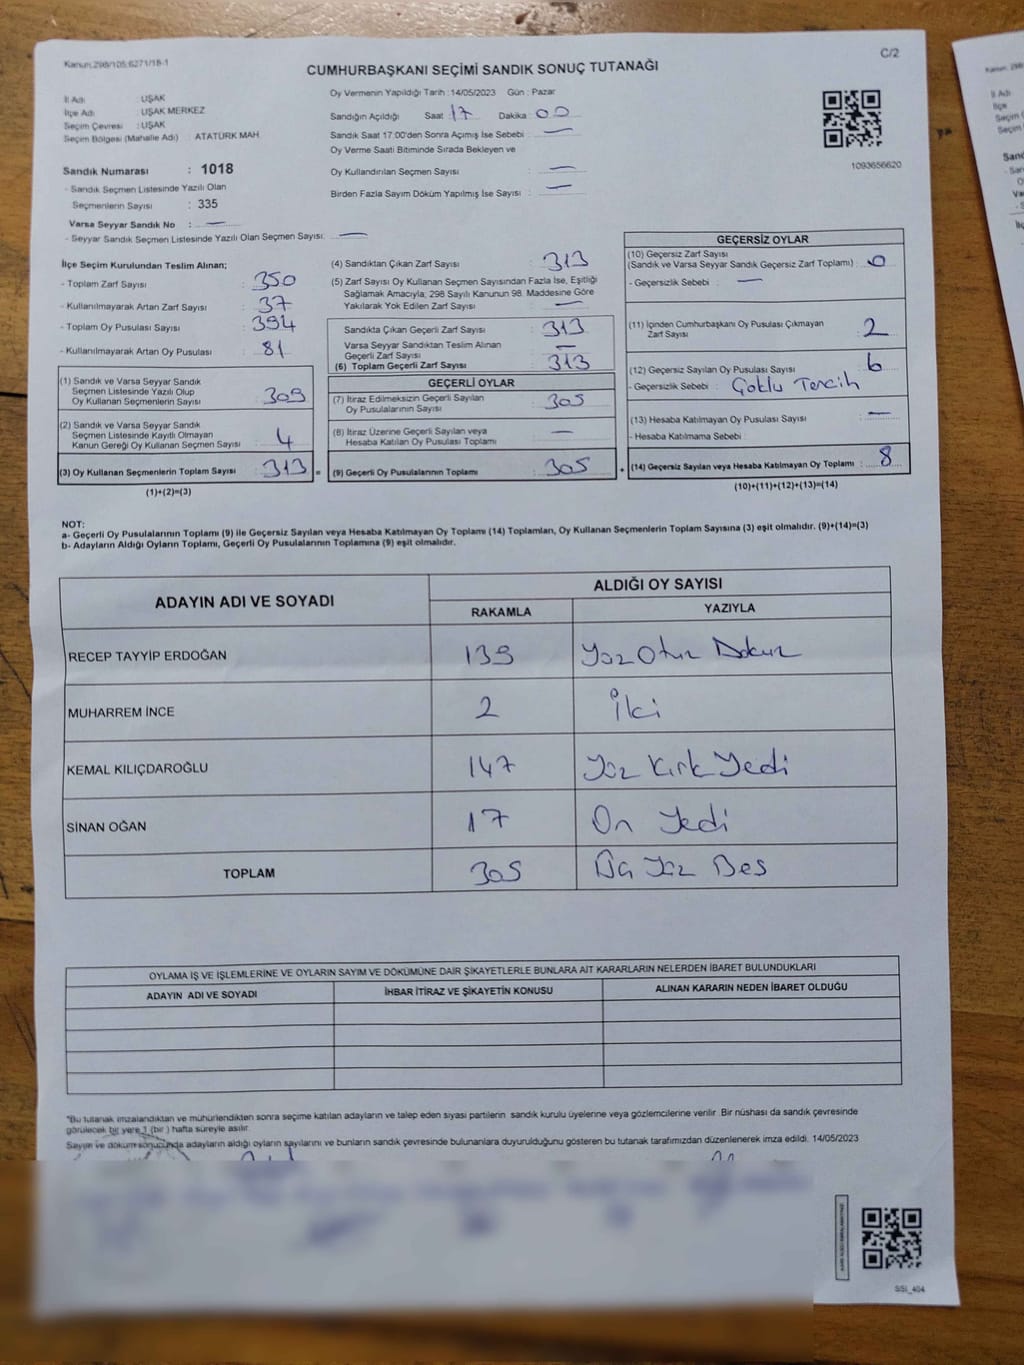 Kanun:298/105:6271/18-1
C/2
CUMHURBAŞKANI SEÇİMİ SANDIK SONUÇ TUTANAĞI
İl Adı : UŞAK
İlçe Adı : UŞAK MERKEZ
Seçim Çevresi : UŞAK
Seçim Bölgesi (Mahalle Adı) : ATATÜRK MAH
Sandık Numarası : 1018
- Sandık Seçmen Listesinde Yazılı Olan
Seçmenlerin Sayısı : 335
Varsa Seyyar Sandık No : —
- Seyyar Sandık Seçmen Listesinde Yazılı Olan Seçmen Sayısı: —
Oy Vermenin Yapıldığı Tarih :14/05/2023 Gün : Pazar
Sandığın Açıldığı Saat 17 Dakika 00
Sandık Saat 17:00'den Sonra Açımış İse Sebebi : —
Oy Verme Saati Bitiminde Sırada Bekleyen ve
Oy Kullandırılan Seçmen Sayısı : —
Birden Fazla Sayım Döküm Yapılmış İse Sayısı : —
1093656620
İlçe Seçim Kurulundan Teslim Alınan;
- Toplam Zarf Sayısı : 350
- Kullanılmayarak Artan Zarf Sayısı : 37
- Toplam Oy Pusulası Sayısı : 394
- Kullanılmayarak Artan Oy Pusulası : 81
(1) Sandık ve Varsa Seyyar Sandık
Seçmen Listesinde Yazılı Olup
Oy Kullanan Seçmenlerin Sayısı : 309
(2) Sandık ve Varsa Seyyar Sandık
Seçmen Listesinde Kayıtlı Olmayan
Kanun Gereği Oy Kullanan Seçmen Sayısı : 4
(3) Oy Kullanan Seçmenlerin Toplam Sayısı : 313 =
(1)+(2)=(3)
(4) Sandıktan Çıkan Zarf Sayısı : 313
(5) Zarf Sayısı Oy Kullanan Seçmen Sayısından Fazla İse, Eşitliği
Sağlamak Amacıyla; 298 Sayılı Kanunun 98. Maddesine Göre
Yakılarak Yok Edilen Zarf Sayısı : —
Sandıkta Çıkan Geçerli Zarf Sayısı : 313
Varsa Seyyar Sandıktan Teslim Alınan
Geçerli Zarf Sayısı : —
(6) Toplam Geçerli Zarf Sayısı : 313
GEÇERLİ OYLAR
(7) İtiraz Edilmeksizin Geçerli Sayılan
Oy Pusulalarının Sayısı : 305
(8) İtiraz Üzerine Geçerli Sayılan veya
Hesaba Katılan Oy Pusulası Toplamı : —
(9) Geçerli Oy Pusulalarının Toplamı : 305 +
GEÇERSİZ OYLAR
(10) Geçersiz Zarf Sayısı
(Sandık ve Varsa Seyyar Sandık Geçersiz Zarf Toplamı) : 0
- Geçersizlik Sebebi : —
(11) İçinden Cumhurbaşkanı Oy Pusulası Çıkmayan
Zarf Sayısı : 2
(12) Geçersiz Sayılan Oy Pusulası Sayısı : 6
- Geçersizlik Sebebi : Çoklu Tercih
(13) Hesaba Katılmayan Oy Pusulası Sayısı : —
- Hesaba Katılmama Sebebi :
(14) Geçersiz Sayılan veya Hesaba Katılmayan Oy Toplamı : 8
(10)+(11)+(12)+(13)=(14)
NOT:
a- Geçerli Oy Pusulalarının Toplamı (9) ile Geçersiz Sayılan veya Hesaba Katılmayan Oy Toplamı (14) Toplamları, Oy Kullanan Seçmenlerin Toplam Sayısına (3) eşit olmalıdır. (9)+(14)=(3)
b- Adayların Aldığı Oyların Toplamı, Geçerli Oy Pusulalarının Toplamına (9) eşit olmalıdır.
ADAYIN ADI VE SOYADI ALDIĞI OY SAYISI
RAKAMLA YAZIYLA
RECEP TAYYİP ERDOĞAN 139 Yüz Otuz Dokuz
MUHARREM İNCE 2 İki
KEMAL KILIÇDAROĞLU 147 Yüz Kırk Yedi
SİNAN OĞAN 17 On Yedi
TOPLAM 305 Üç Yüz Bes
OYLAMA İŞ VE İŞLEMLERİNE VE OYLARIN SAYIM VE DÖKÜMÜNE DAİR ŞİKAYETLERLE BUNLARA AİT KARARLARIN NELERDEN İBARET BULUNDUKLARI
ADAYIN ADI VE SOYADI İHBAR İTİRAZ VE ŞİKAYETİN KONUSU ALINAN KARARIN NEDEN İBARET OLDUĞU
*Bu tutanak imzalandıktan ve mühürlendikten sonra seçime katılan adayların ve talep eden siyasi partilerin sandık kurulu üyelerine veya gözlemcilerine verilir. Bir nüshası da sandık çevresinde
görülecek bir yere 1 (bir ) hafta süreyle asılır.
Sayım ve döküm sonucunda adayların aldığı oyların sayılarını ve bunların sandık çevresinde bulunanlara duyurulduğunu gösteren bu tutanak tarafımızdan düzenlenerek imza edildi. 14/05/2023
SSI_404